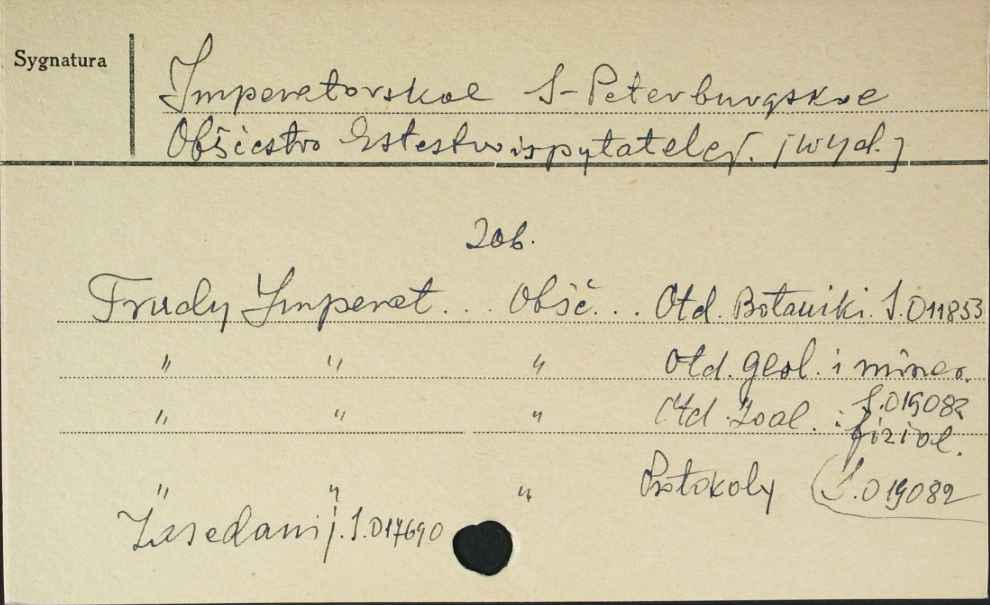 Sygnatura
Imperatorskoe S-Peterburgskoe
Obščestvo Estestvoispytatelej. [wyd.]
Zob.
Trudy Imperat... Obšč... Otd. Botaniki. S.011853
" " " Otd. geol. i miner.
S.019082
" " " Otd. Zool. i fiziol.
" " " Protokoly (S.019082
Zasedanij. S.017690